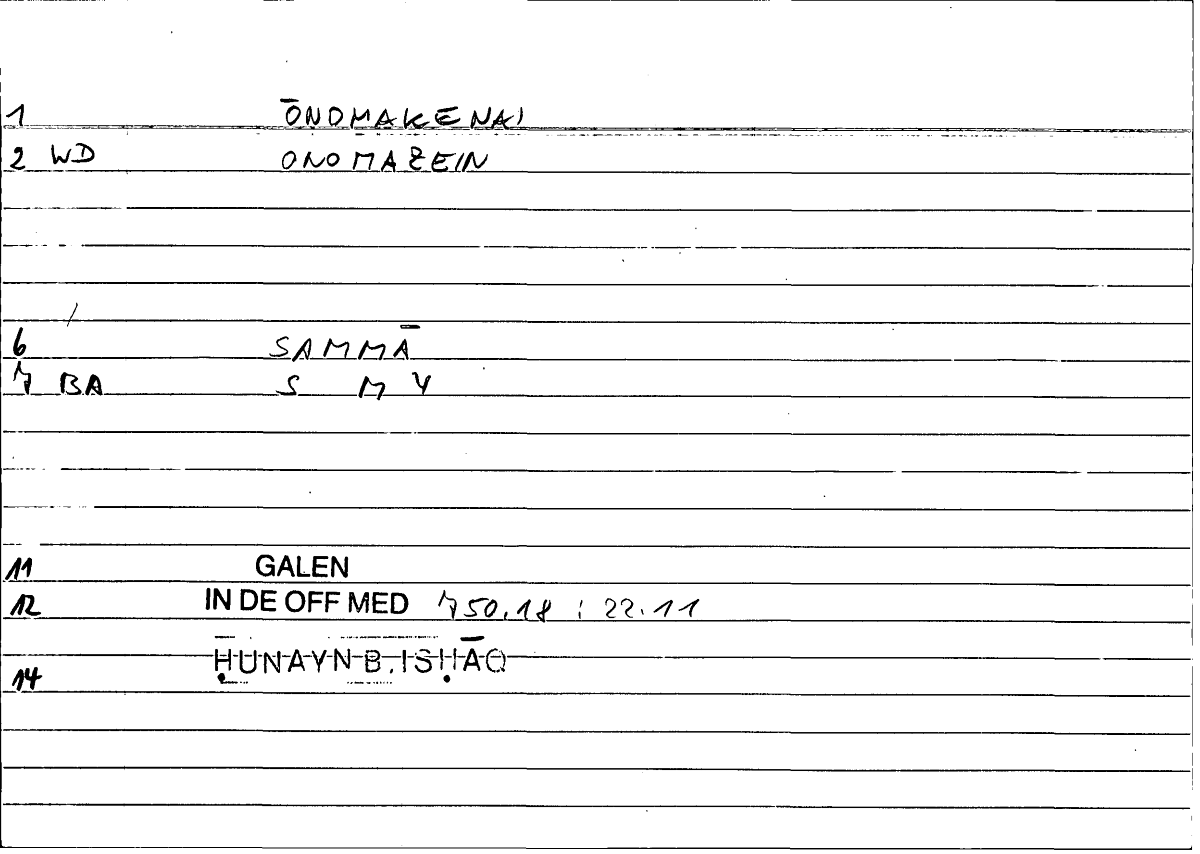 1 ŌNOMAKENAI
2 WD ONOMAZEIN
6 SAMMĀ
7 BA S M Y
11 GALEN
12 IN DE OFF MED 750.18 : 22.11
14 ḤUNAYN B. ISḤĀQ